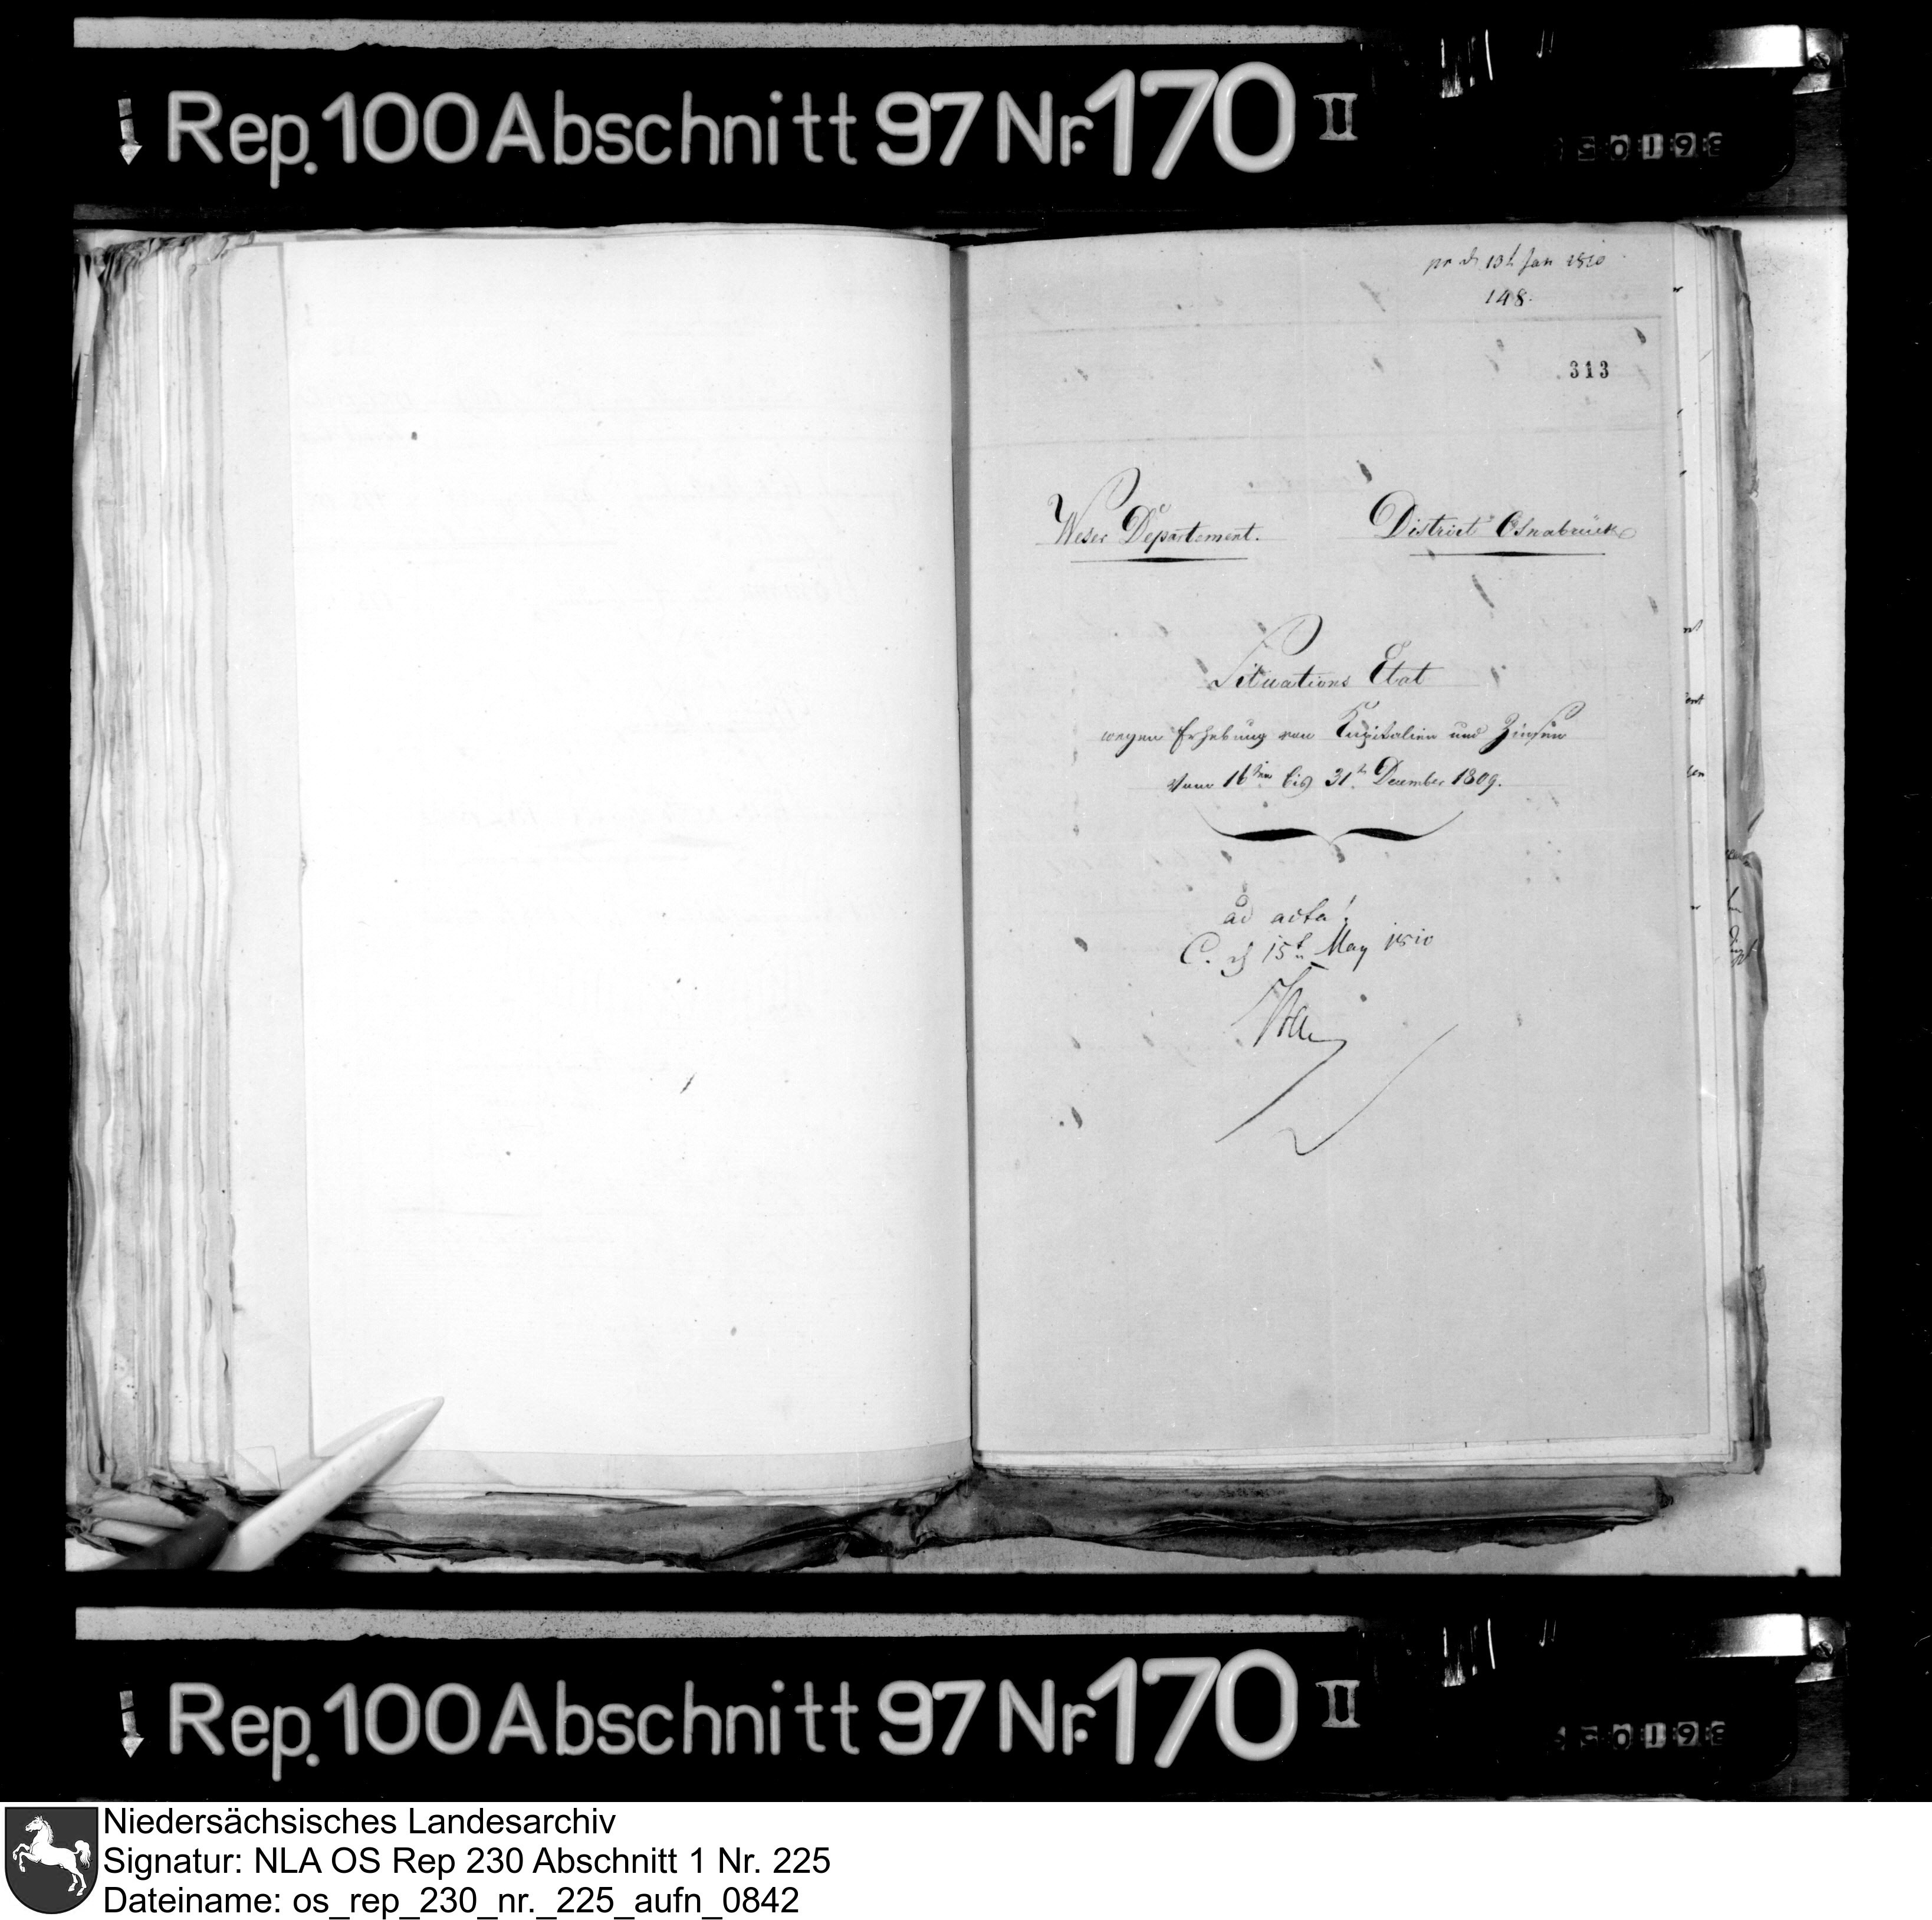 Rep. 100 Abschnitt 97 Nr. 170 II
pr d 13t Jan 1810
148.
313
Weser Departement. District Osnabrück
Situations Etat
wegen Erhebung von Kapitalien und Zinsen
vom 16ten bis 31t December 1809.
ad acta!
C. d 15t May 1810
Rep. 100 Abschnitt 97 Nr. 170 II
Niedersächsisches Landesarchiv
Signatur: NLA OS Rep 230 Abschnitt 1 Nr. 225
Dateiname: os_rep_230_nr._225_aufn_0842